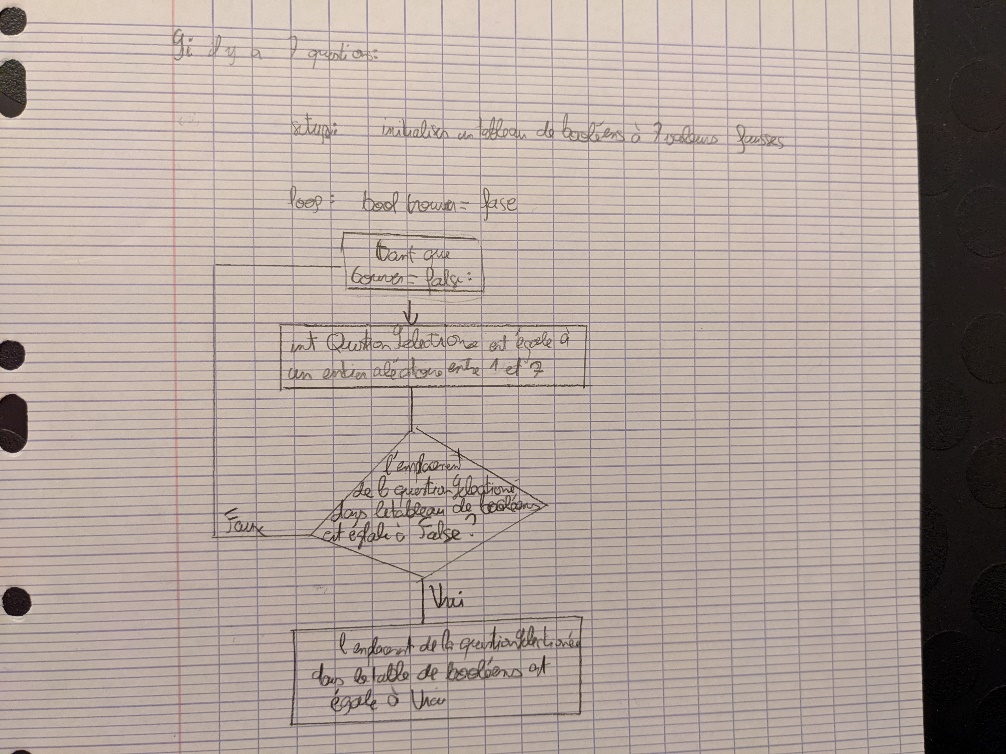 Si il y a 7 questions:
setup: initialiser un tableau de booléens à 7 valeurs fausses
loop: bool trouver = fase
tant que
trouver = false:
int QuestionSelectionne est égale à
un entier aléatoire entre 1 et 7
l'emplacement
de la questionSelectionne
dans le tableau de booléens
est égale à False ?
Faux
Vrai
l'emplacement de la questionSelectionnée
dans le table de booléens est
égale à Vrai